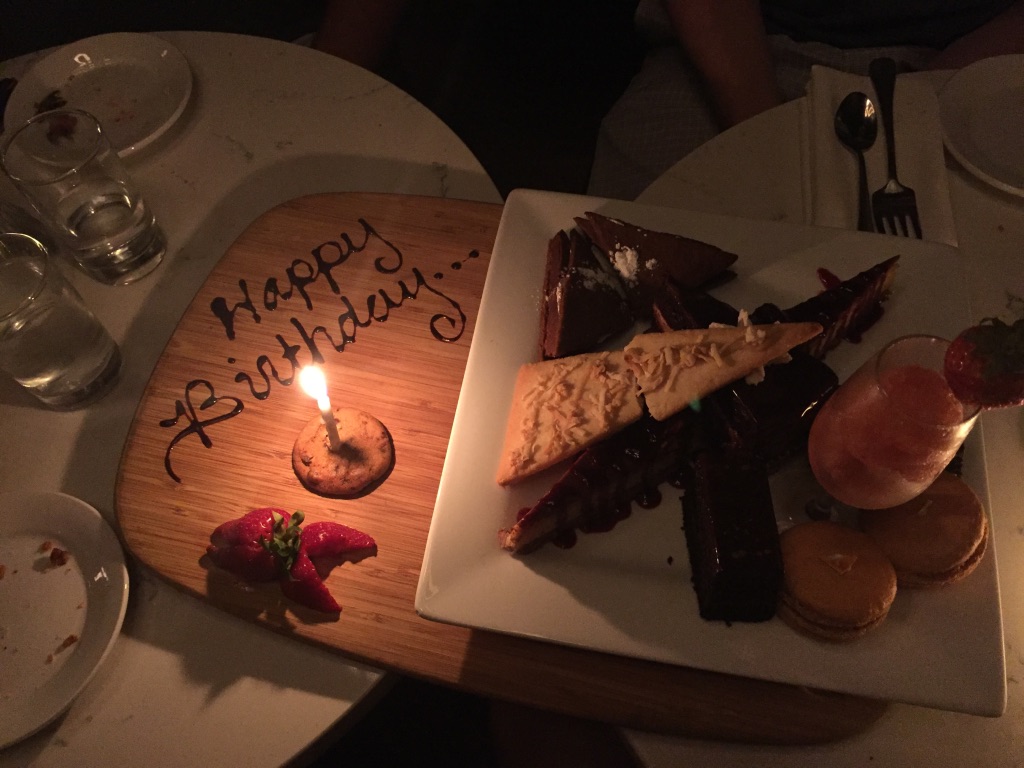 Happy
Birthday...